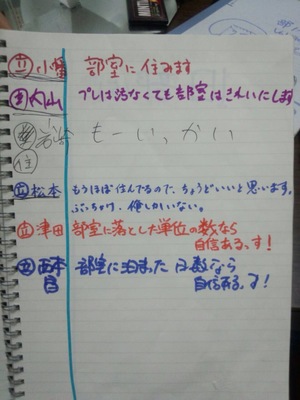 立 小 部室に住みます
立 内山 プレは汚なくても部室はきれいにします
もーいっかい
立 松本 もうほぼ住んでるので、ちょうどいいと思います。
ぶっちゃけ、俺しかいない。
立 津田 部室に落とした単位の数なら
自信あるっす!
立 西本 部室に泊まった日数なら
昌 自信あるっす!